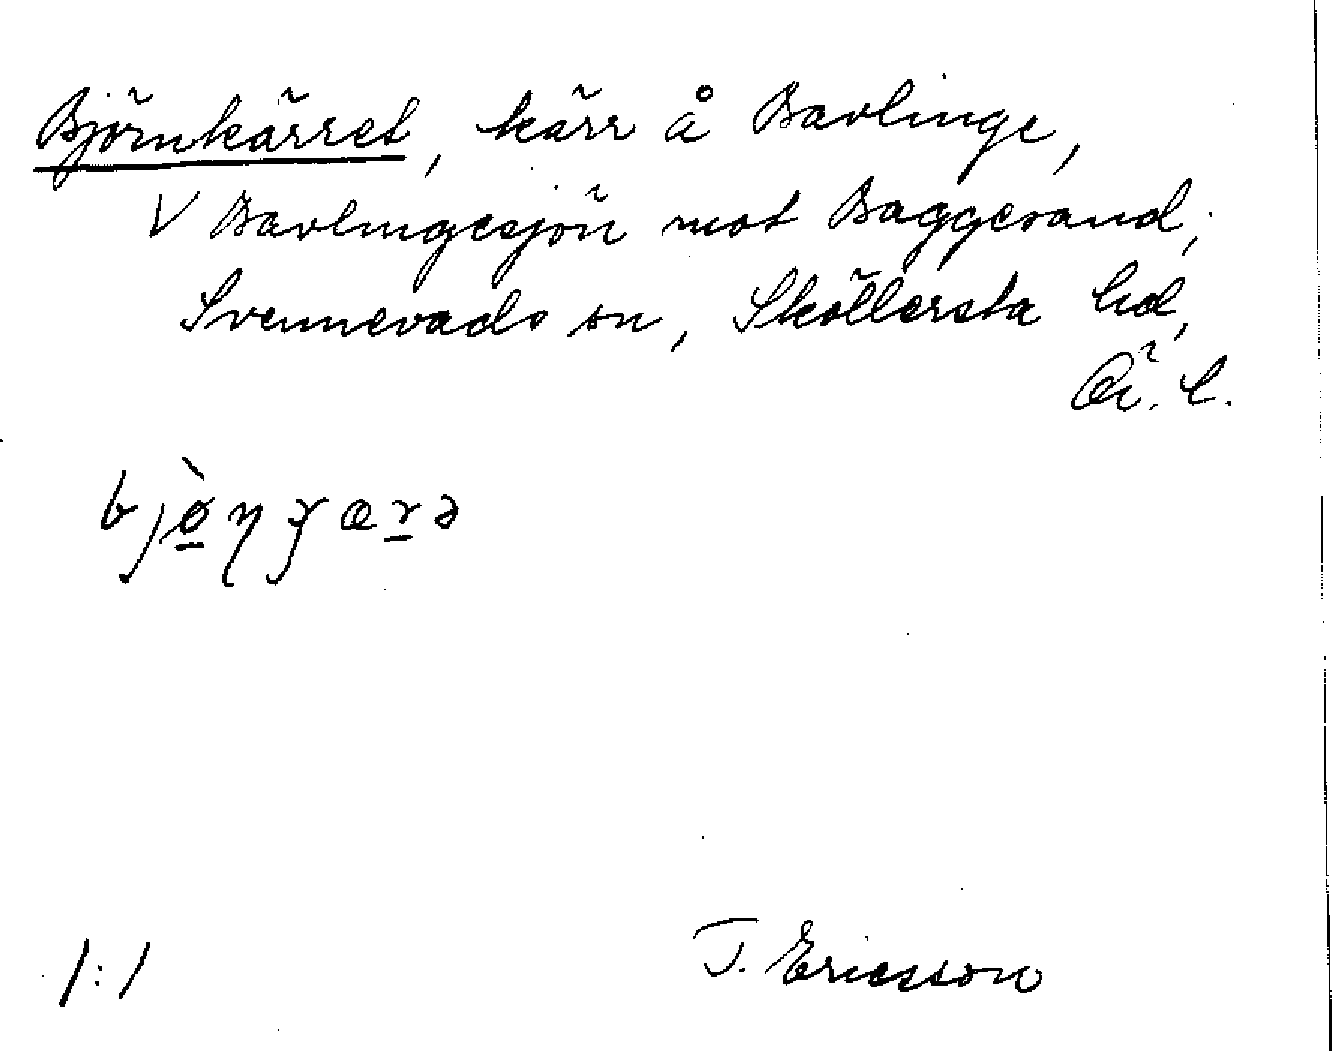 Björnkärret, kärr å Bavlinge,
V Bavlingesjön mot Baggesand,
Svennevads sn, Sköllersta hd,
Ör. l.
bjø̱̀ɳχæṟə
1:1
T. Ericsson